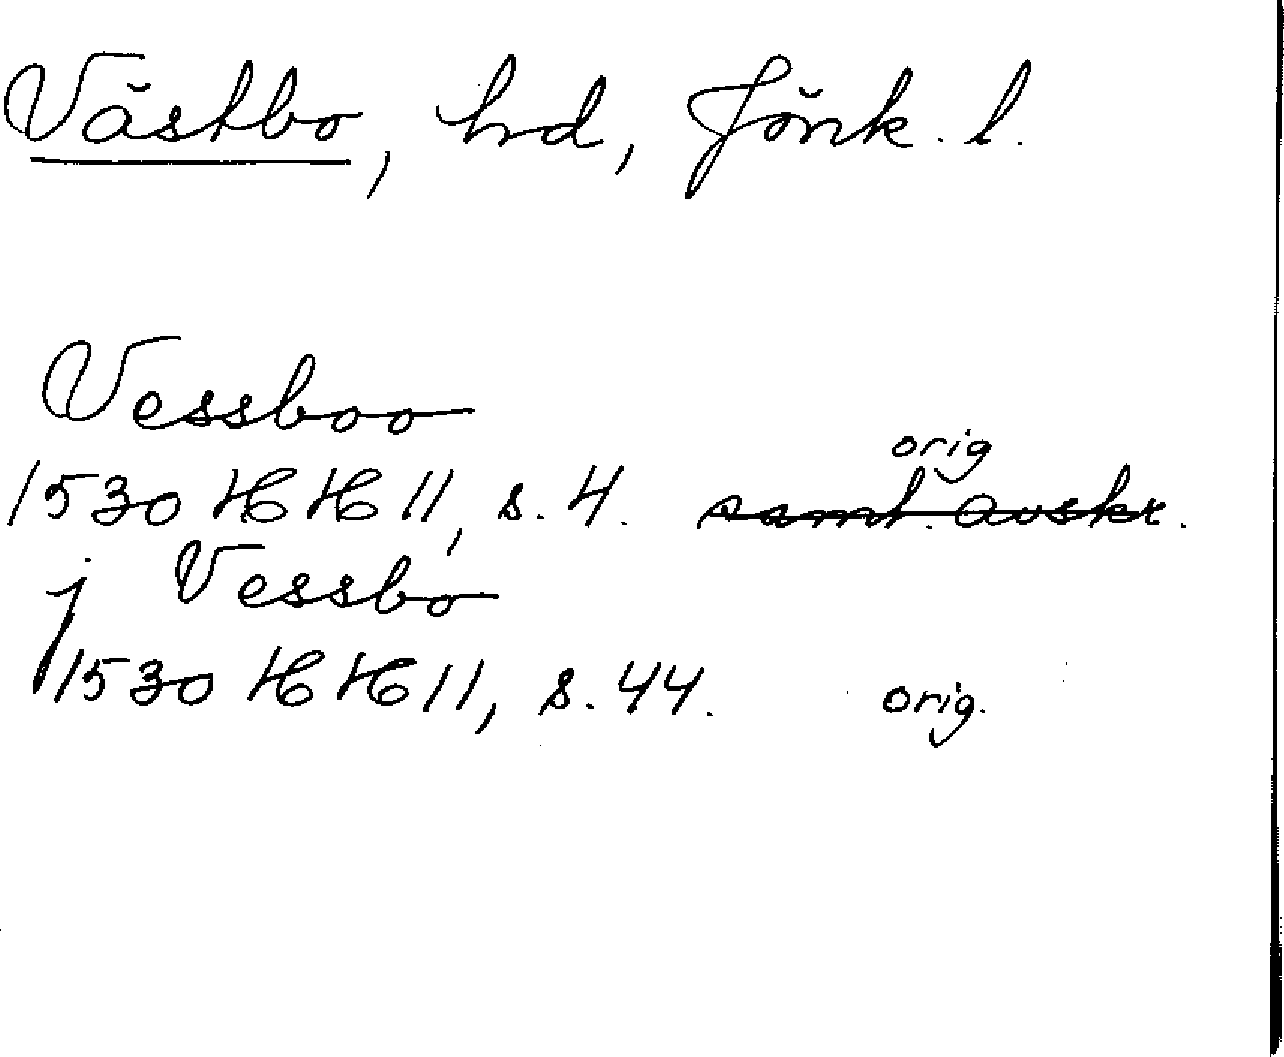 Västbo, hd, Jönk. l.
Vessboo
orig
1530 HH 11, s. 4. samt. avskr.
j Vessbo
1530 HH 11, s. 44. orig.